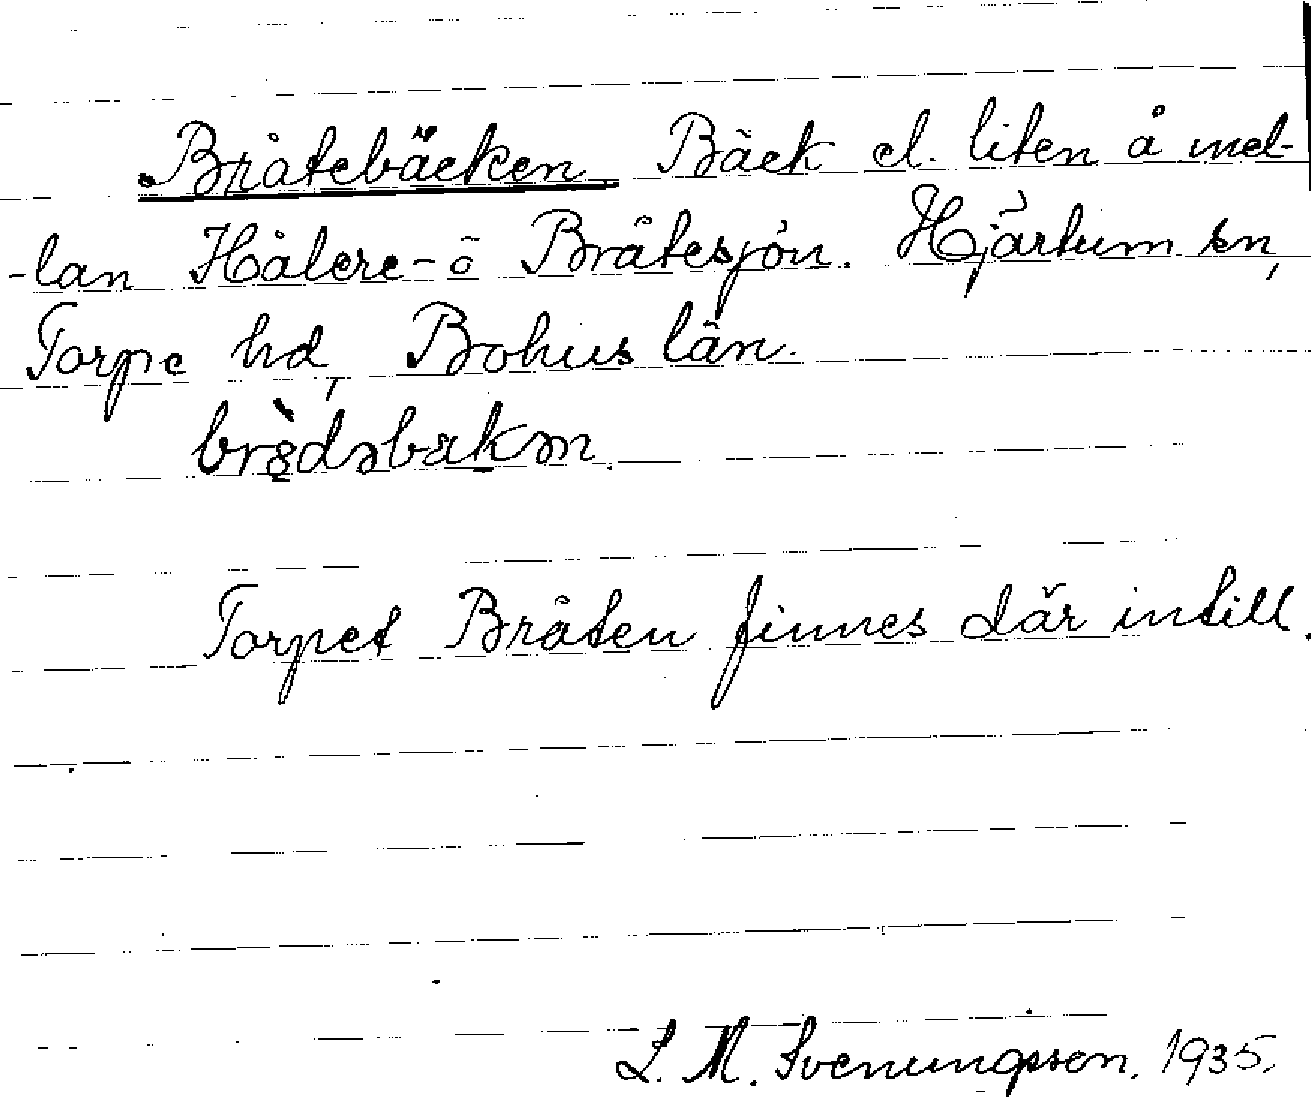 Bråtebäcken Bäck el. liten å mel-
-lan Hålere- o Bråtesjön. Hjärtum sn,
Torpe hd, Bohus län.
Torpet Bråten finnes där intill.
L. M. Svenungsson. 1935.